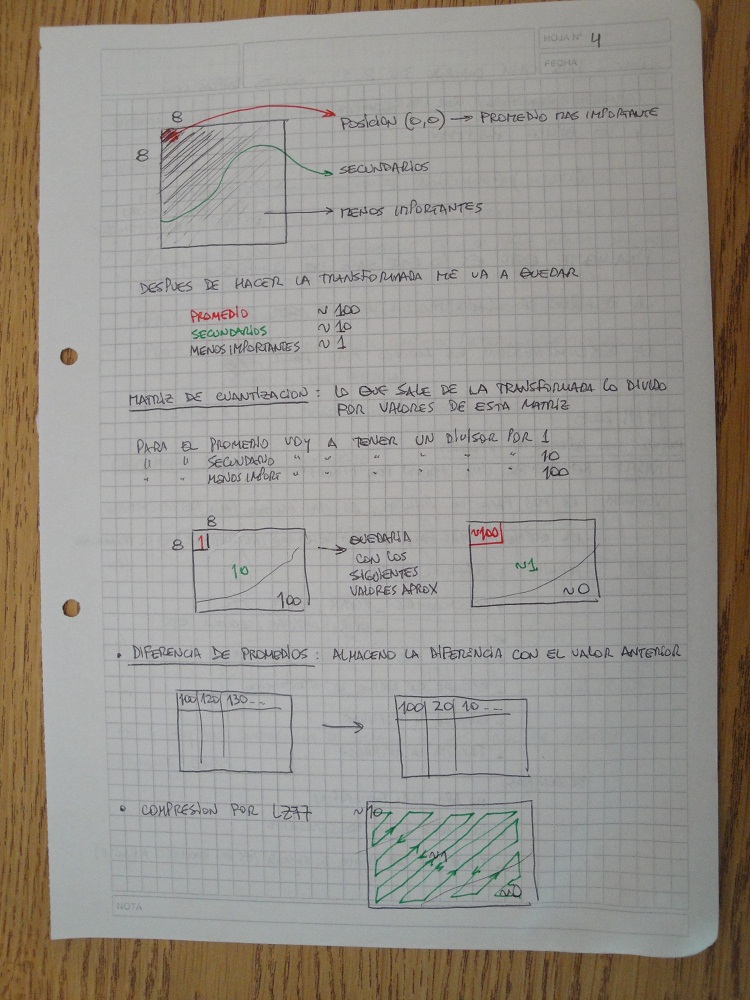 HOJA N° 4
FECHA
8
8
POSICION (0,0) → PROMEDIO MAS IMPORTANTE
SECUNDARIOS
MENOS IMPORTANTES
DESPUES DE HACER LA TRANSFORMADA ME VA A QUEDAR
PROMEDIO ~ 100
SECUNDARIOS ~ 10
MENOS IMPORTANTES ~ 1
MATRIZ DE CUANTIZACION : LO QUE SALE DE LA TRANSFORMADA LO DIVIDO
POR VALORES DE ESTA MATRIZ
PARA EL PROMEDIO VOY A TENER UN DIVISOR POR 1
" " SECUNDARIO " " " " " " 10
" " MENOS IMPORT " " " " " " 100
8
8
1
10
100
QUEDARIA
CON LOS
SIGUIENTES
VALORES APROX
~100
~1
~0
• DIFERENCIA DE PROMEDIOS : ALMACENO LA DIFERENCIA CON EL VALOR ANTERIOR
100 120 130...
100 20 10...
• COMPRESION POR LZ77
~10
~1
~0
NOTA